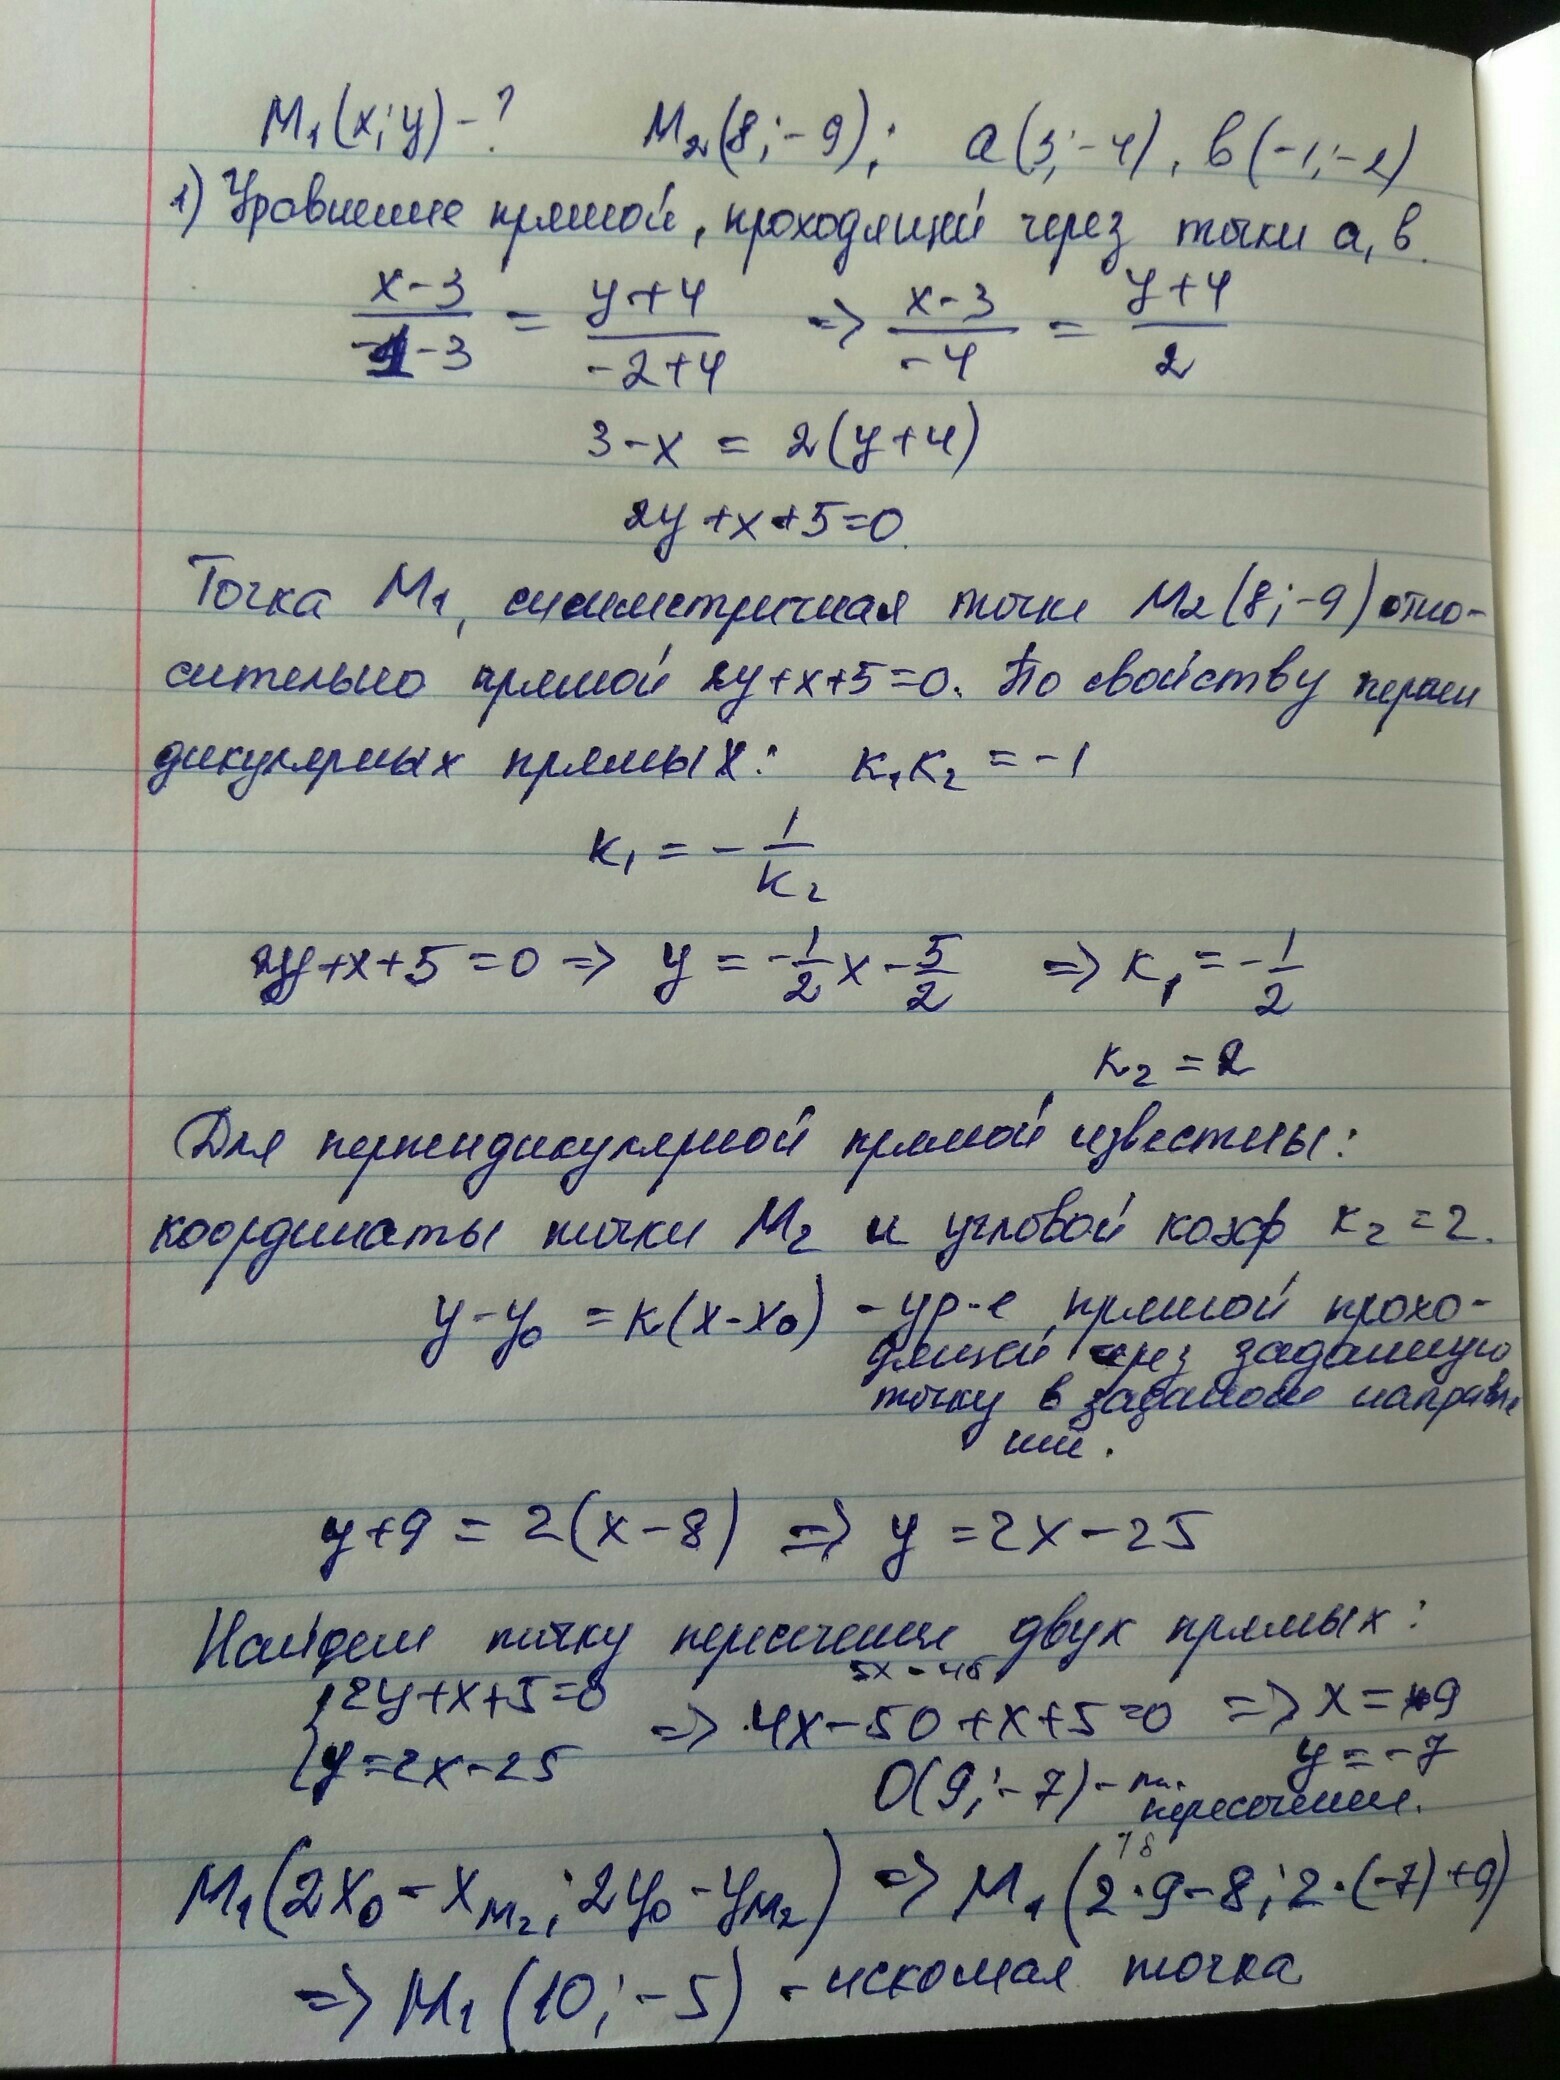 М₁(x; y) - ? М₂(8; -9); а(3; -4), в(-1; -2)
1) Уравнение прямой, проходящей через точки а, в.
x-3/-1-3 = y+4/-2+4 => x-3/-4 = y+4/2
3-x = 2(y+4)
2y+x+5=0.
Точка М₁, симметричная точке М₂(8; -9) отно-
сительно прямой 2y+x+5=0. По свойству перпен
дикулярных прямых: к₁к₂ = -1
к₁ = - 1/к₂
2y+x+5=0 => y = -1/2 x - 5/2 => к₁ = -1/2
к₂ = 2
Для перпендикулярной прямой известны:
координаты точки М₂ и угловой коэф к₂ = 2.
y-y₀ = к(x-x₀) - ур-е прямой прохо-
дящей через заданную
точку в заданом направле
нии.
y+9 = 2(x-8) => y = 2x-25
Найдем точку пересечения двух прямых:
5x = 45
{2y+x+5=0
y=2x-25 => 4x-50+x+5=0 => x = 9
y = -7
О(9; -7) - т.
пересечения.
18
М₁(2x₀ - x_М₂; 2y₀ - y_М₂) => М₁(2·9-8; 2·(-7)+9)
=> М₁(10; -5) - искомая точка